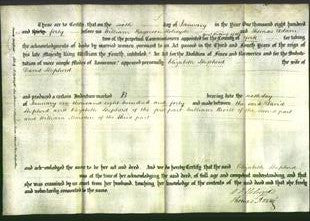 These are to Certify that on the sixth day of January in the Year One thousand eight hundred
and forty before William and Thomas Adam
two of the perpetual Commissioners appointed for the County of York for taking
the acknowledgments of deeds by married women pursuant to an Act passed in the Third and Fourth years of the reign of
his late Majesty King William the Fourth, intituled "An Act for the Abolition of Fines and Recoveries and for the Substitution
of more simple Modes of Assurance" appeared personally Elizabeth Shepherd the wife of
David Shepherd
and produced a certain Indenture marked B bearing date the sixth day
of January one thousand eight hundred and forty and made between the said David
Shepherd and Elizabeth Shepherd of the first part William of the second part
and William of the third part
and acknowledged the same to be her act and deed. And we do hereby Certify that the said Elizabeth Shepherd
was at the time of her acknowledging the said deed, of full age and competent understanding, and that
she was examined by us apart from her husband, touching her knowledge of the contents of the said deed and that she freely
and voluntarily consented to the same.